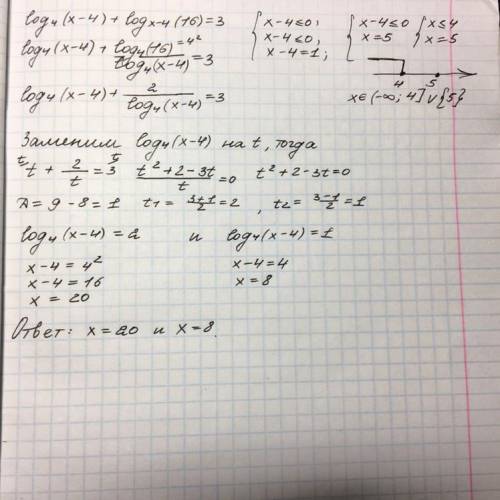 log₄(x-4) + logₓ₋₄(16) = 3
log₄(x-4) + log₄(16)⁼⁴² / log₄(x-4) = 3
log₄(x-4) + 2 / log₄(x-4) = 3
{ x-4≤0, x-4≤0, x-4=1;
{ x-4≤0 x=5
{ x≤4 x=5
4 5
x∈(-∞; 4] ∨ {5}
Заменим log₄(x-4) на t, тогда
t + 2/t = 3 (t²+2-3t)/t = 0 t²+2-3t=0
Д = 9-8=1 t₁ = (3+1)/2 = 2 , t₂ = (3-1)/2 = 1
log₄(x-4) = 2 и log₄(x-4) = 1
x-4 = 4² x-4=4
x-4 = 16 x=8
x = 20
Ответ: x = 20 и x=8.